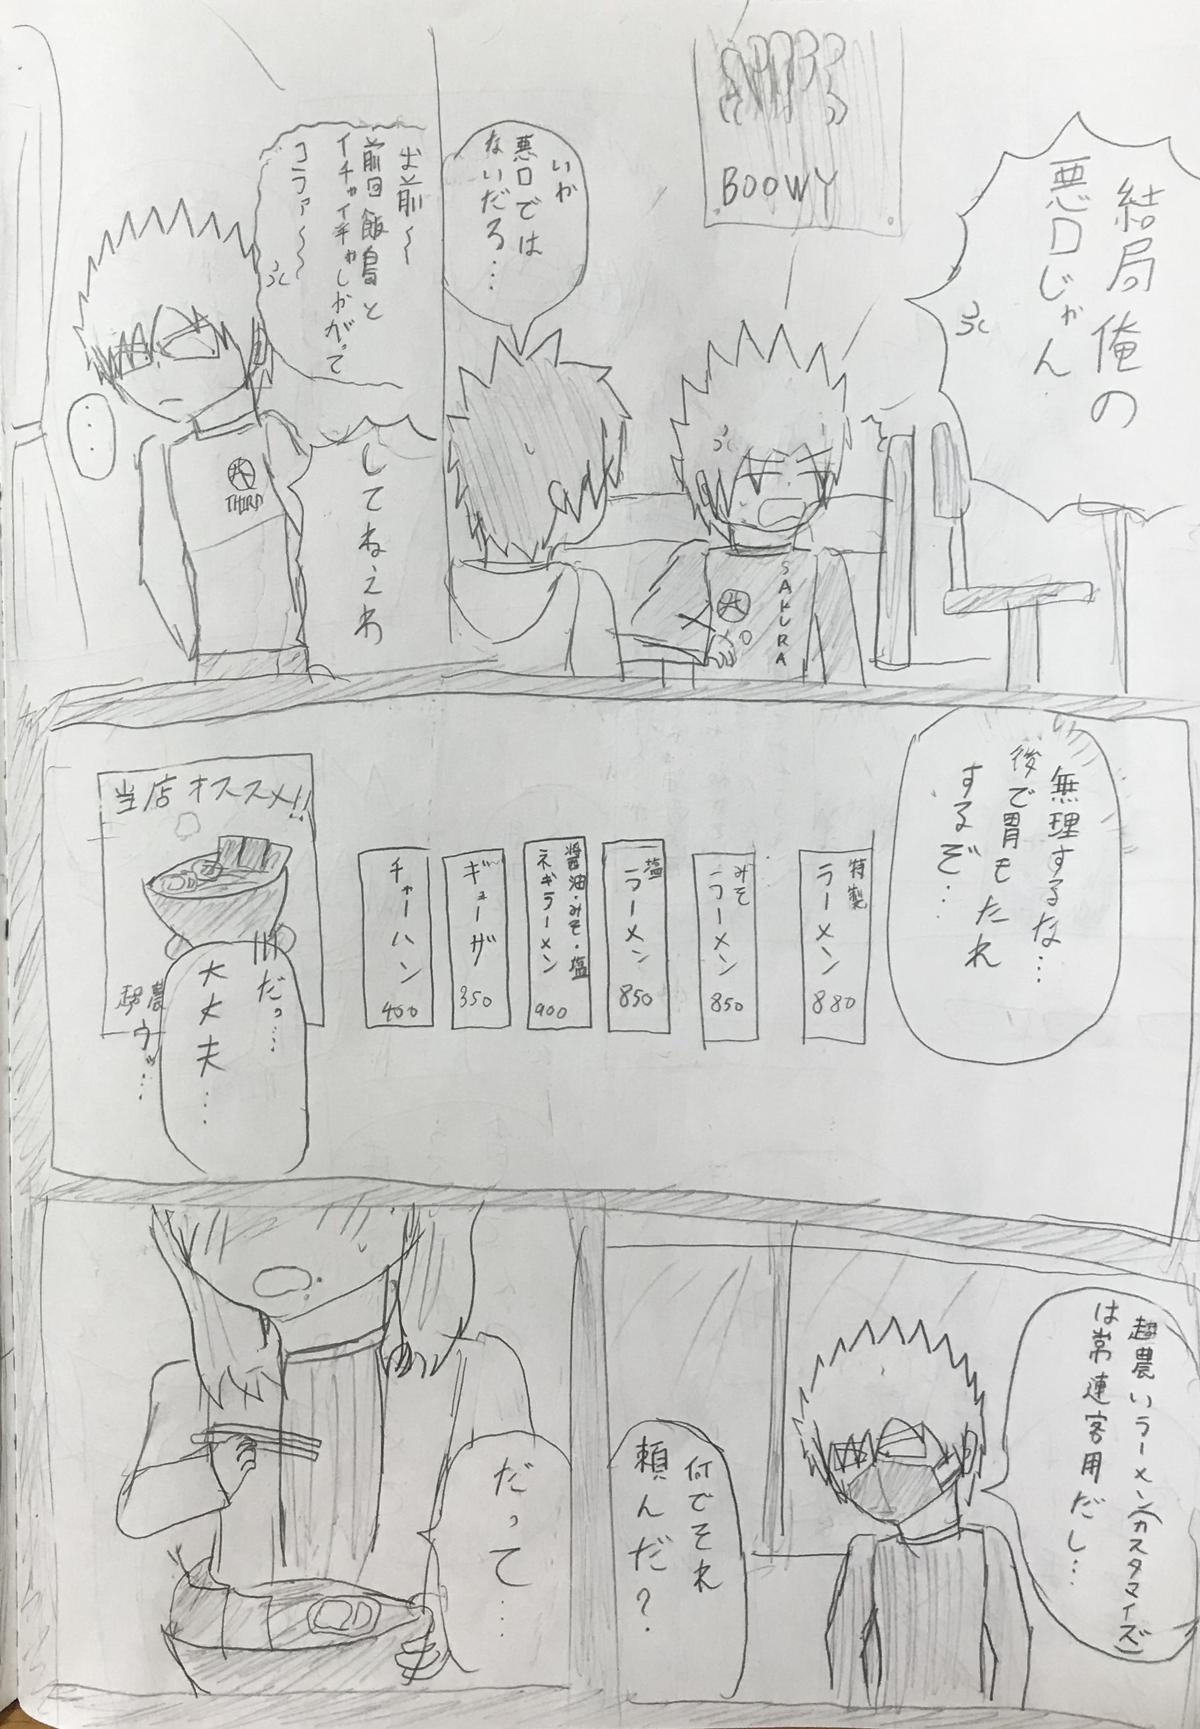 結局俺の
悪口じゃん
BOOWY
SAKURA
いや
悪口では
ないだろ…
お前〜
前田飯島と
イチャイチャしやがって
コラァ〜〜
してねぇわ
THIRD
…
無理するな…
後で胃もたれ
するぞ…
特製
ラーメン
880
みそ
ラーメン
850
塩
ラーメン
850
醤油・みそ・塩
ネギラーメン
900
ギョーザ
350
チャーハン
400
当店オススメ!!
だっ…
大丈夫…
ウッ…
超農いラーメン(カスタマイズ)
は常連客用だし…
何でそれ
頼んだ?
だって…